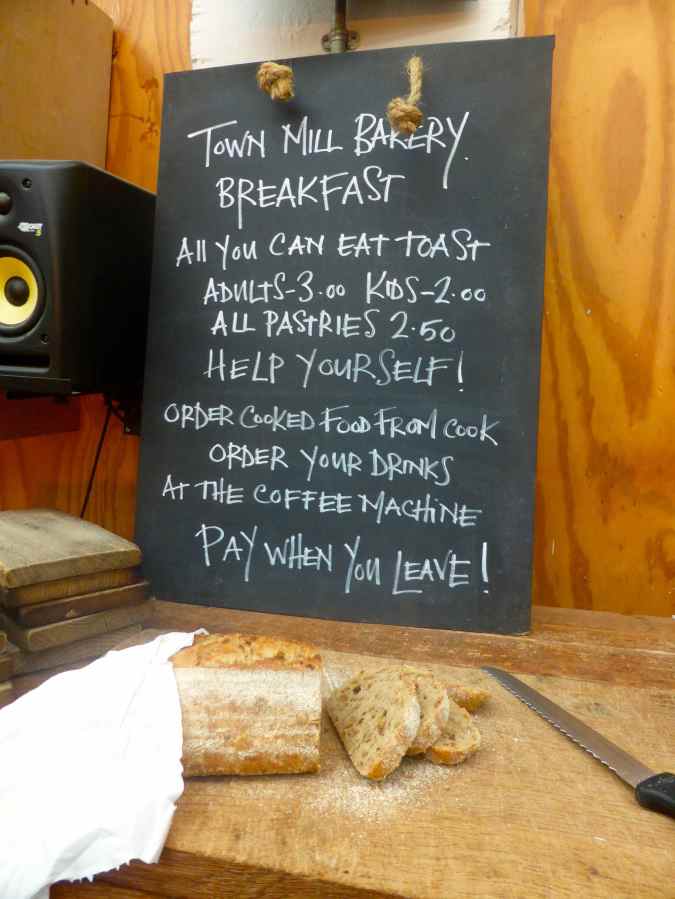 TOWN MILL BAKERY.
BREAKFAST
All YOU CAN EAT TOAST
ADULTS-3.00 KIDS-2.00
ALL PASTRIES 2.50
HELP YOURSELF!
ORDER COOKED FOOD FROM COOK
ORDER YOUR DRINKS
AT THE COFFEE MACHINE
PAY WHEN YOU LEAVE!